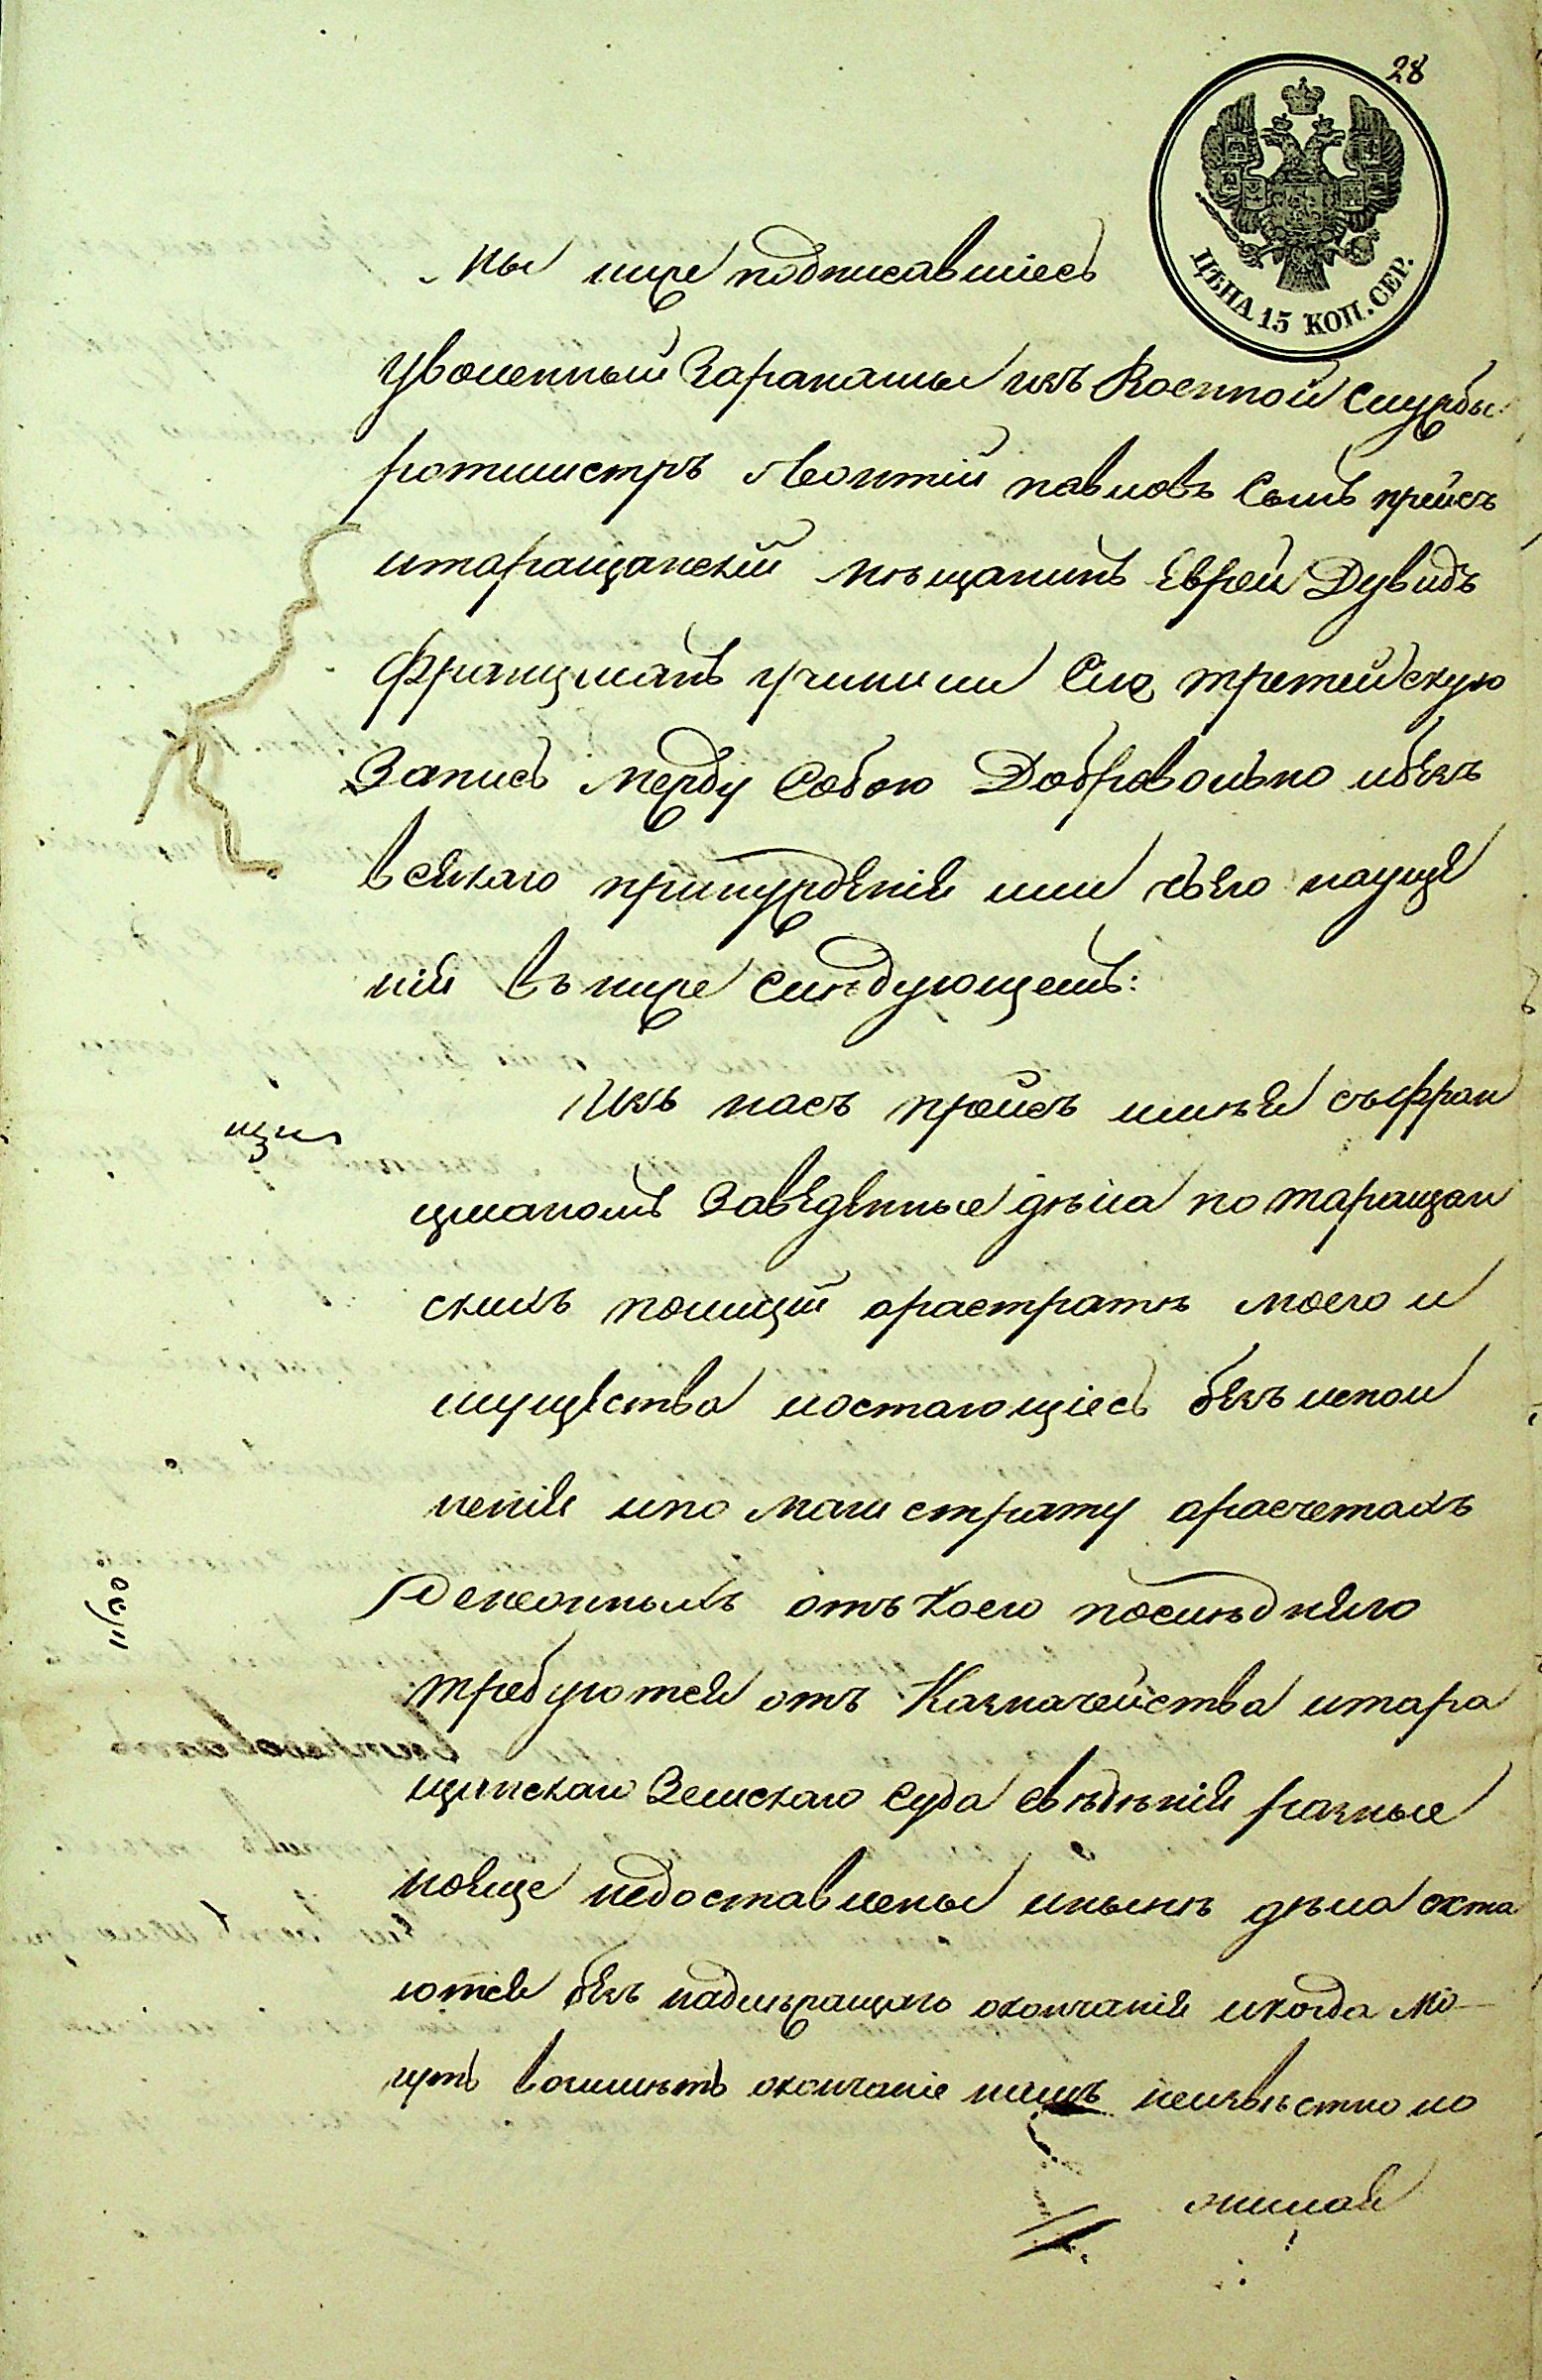 28
ЦѢНА 15 КОП. СЕР.
Мы ниже подписавшіесь
уволенный Заранами изъ Военной Службы
ротмистръ Леонтій павловъ Сынъ прейсъ
итаращанскій мѣщанинъ Еврей Дувидъ
Францманъ учинили Сію третейскую
Запись Между Собою Добровольно ибезъ
всякаго принужденія или чьего науще
нія въ ниже Слѣдующемъ:
Изъ насъ прейсъ имѣя съФран
цманомъ Заведенные дѣла по таращан
скихъ полиціи орастратѣ моего и
мущества иостающіесь безъ испол
ненія ипо магистрату орасчетахъ
Денежныхъ отъ Коего послѣдняго
требуются отъ Казначейства итара
щанскаго Земскаго Суда свѣдѣнія разные
но еще недоставлены инынѣ дѣла оста
ются безъ надлѣжащаго окончанія икогда мо-
гутъ воимѣть окончаніе намъ неизвѣстно но